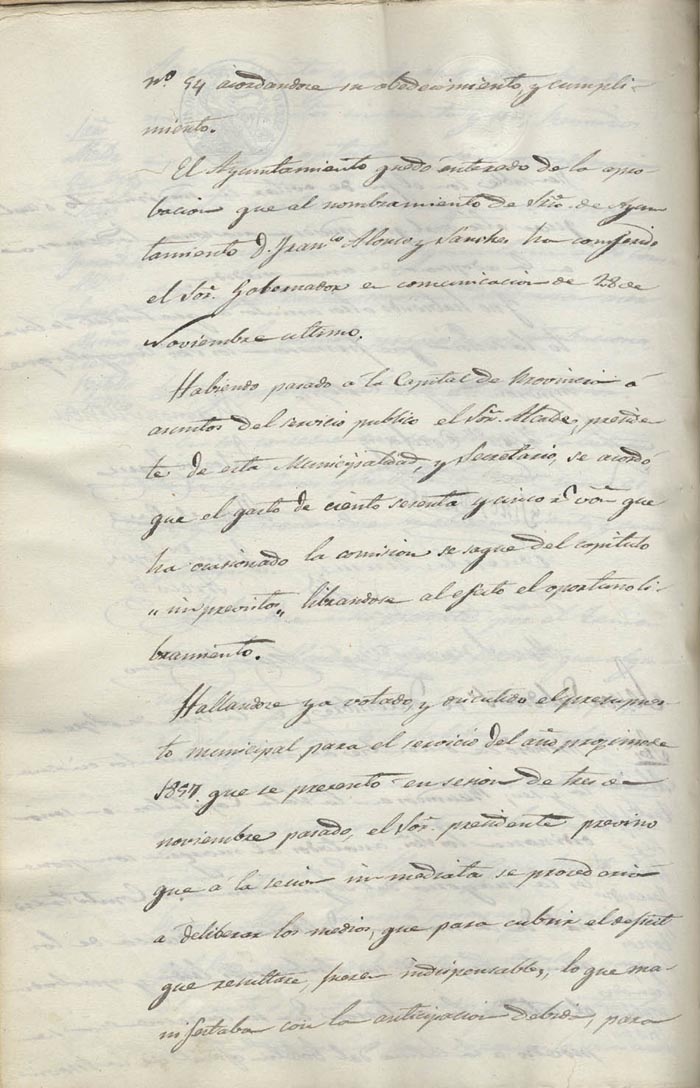 nº 54 acordandose su obedecimiento, y cumpli-
miento.
El Ayuntamiento quedó enterado de la apro-
bacion que al nombramiento de Srio. de Ayun
tamiento D. Franco Alonso y Sanchez ha conferido
el Sor. Gobernador en comunicacion de 28 de
Noviembre ultimo.
Habiendo pasado á la Capital de Provincia á
asuntos del servicio publico el Sor. Alcalde, preside
te de esta Municipalidad, y Secretario, se acordó
que el gasto de ciento sesenta y cinco rs von que
ha ocasionado la comision se saque del capitulo
"imprevistos", librandose al efecto el oportuno li-
bramiento.
Hallandose ya votado, y discutido el presupues
to municipal para el servicio del año procsimo de
1857 que se presentó en sesion de tres de
noviembre pasado, el Sor. presidente previno
que á la secion inmediata se procederia
a deliberar los medios, que para cubrir el deficit
que resultare, fueren indispensables, lo que ma-
nifestaba con la anticipacion debida, para